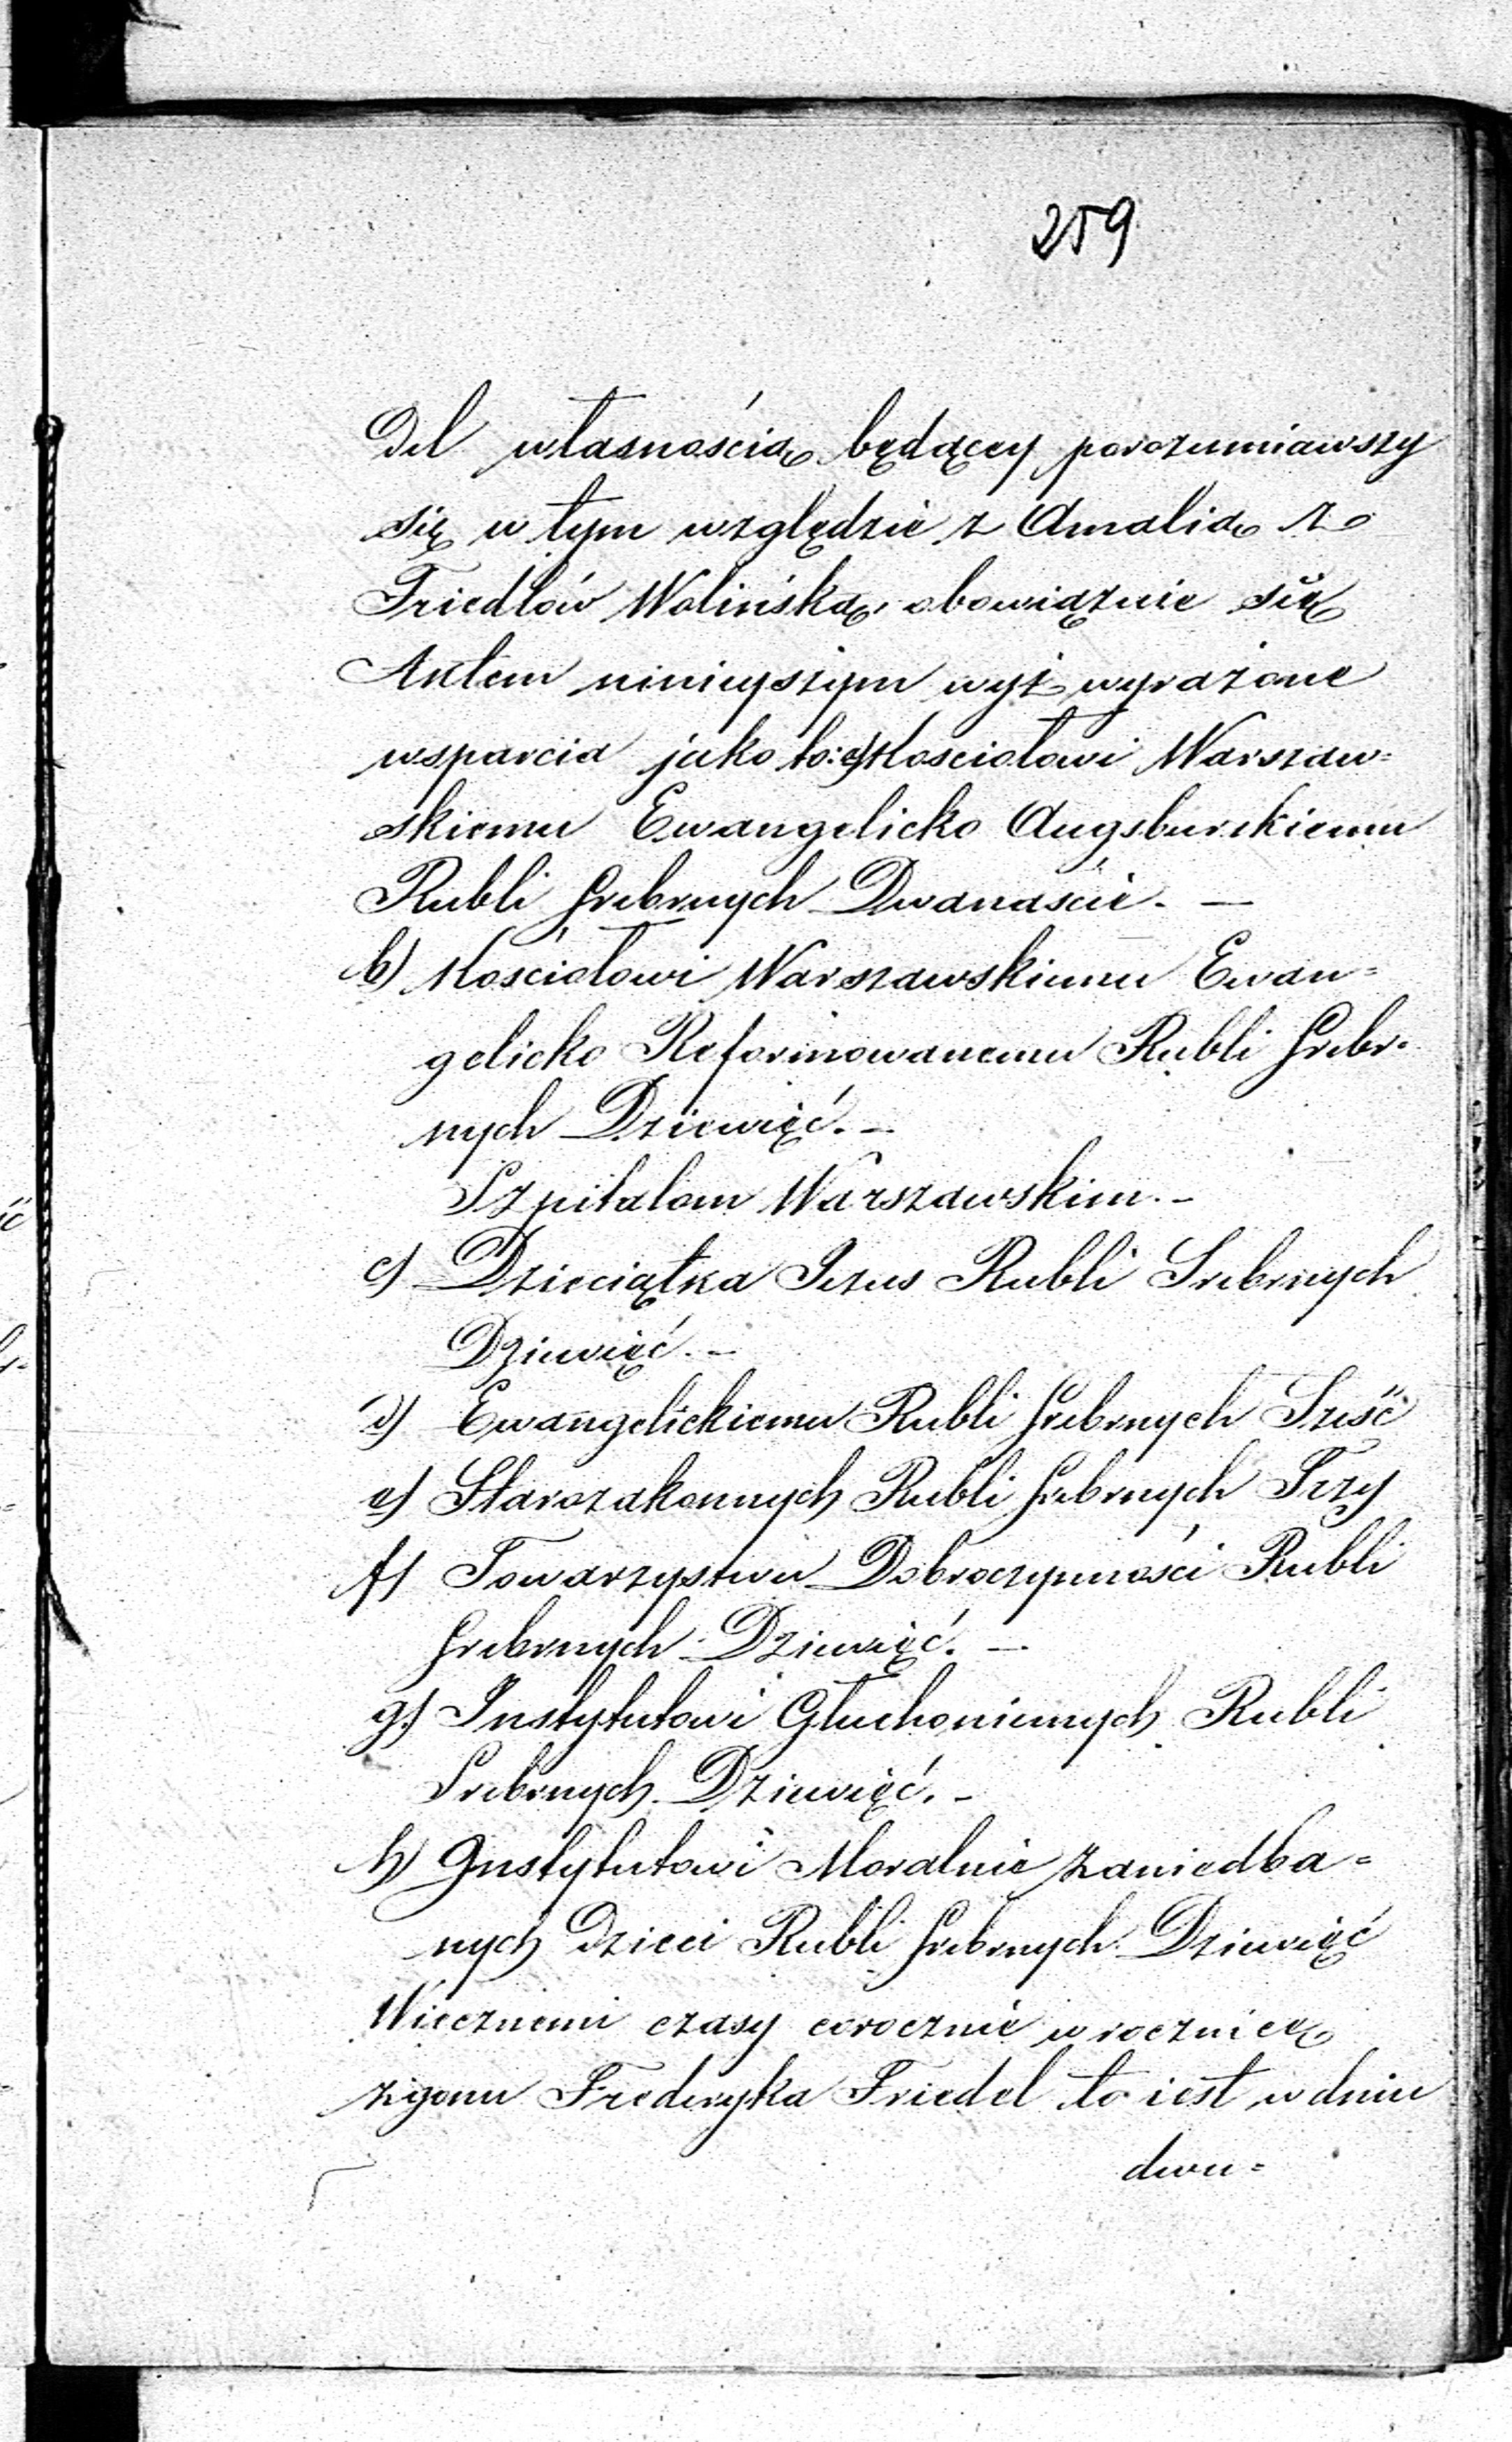 259
Del własnością będącey porozumiawszy
się w tym względzie z Amalią z
Friedlów Wolińską, obowiązuie się
Aktem ninieyszym wyż wyrażone
wsparcia jako to: a) Kosciołowi Warszaw=
skiemu Ewangelicko Augsburskiemu
Rubli srebrnych Dwanaście. —
b) Kościołowi Warszawskiemu Ewan=
gelicko Reformowanemu Rubli srebr=
nych Dziewięć. –
Szpitalom Warszawskim. –
c) Dzieciątka Jezus Rubli Srebrnych
Dziewięć. –
d) Ewangelickiemu Rubli srebrnych Sześć
e) Starozakonnych Rubli srebrnych Trzy
f) Towarzystwu Dobroczynności Rubli
srebrnych Dziewięć. —
g) Instytutowi Głuchoniemych Rubli
Srebrnych Dziewięć. –
h) Instytutowi Moralnie zaniedba=
nych Dzieci Rubli srebrnych Dziewięć
Wiecznemi czasy corocznie w rocznicę
zgonu Fredryka Friedel to iest w dniu
dwu=